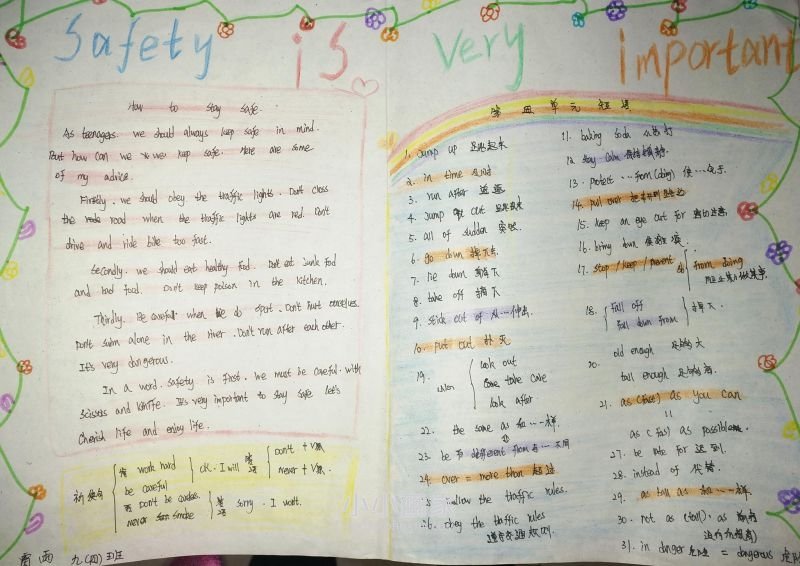 Safety is very important
How to stay safe
As teenagers. we should always keep safe in mind.
But how can we keep safe. Here are some
of my advice.
Firstly. we should obey the traffic lights. Don't closs
the road when the traffic lights are red. Don't
drive and ride bike too fast.
Secondly. we should eat healthy food. Don't eat junk food
and bad food. Don't keep poison in the kitchen.
Thirdly. Be careful when we do sport. Don't hurt ourselves.
Don't swim alone in the river. Don't run after each other.
It's very dangerous.
In a word. safety is first. We must be careful. with
scissors and knife. It's very important to stay safe. let's
cherish life and enjoy life.
祈使句
肯 work hard
be careful
否 Don't be careless.
never smoke
ok. I will
答语
don't + V原
never + V原
答语 sorry. I won't.
九(四)班
第四单元短语
1. Jump up 跳起来
2. in time 及时
3. run after 追逐
4. Jump out 跳出来
5. all of sudden 突然
6. go down
7. lie down 躺下
8. take off
9. stick out of 从…伸出
10. put out 扑灭
19.
look out
take care
look after
22. the same as 和…一样
23. be different from 与…不同
24. over = more than 超过
25. follow the traffic rules.
26. obey the traffic rules
遵守交通规则.
11. baking soda 小苏打
12. stay calm 保持镇静
13. protect … from (doing)
14. pull over
15. keep an eye out for 密切注意
16. bring down
17. stop / keep / prevent sb from doing
阻止某人做某事
18. fall off
fall down from
20. old enough 足够大
tall enough 足够高
21. as (fast) as you can
=
as (fast) as possible
27. be late for 迟到.
28. instead of 代替
29. as tall as 和…一样
30. not as (tall) as
31. in danger 危险 = dangerous